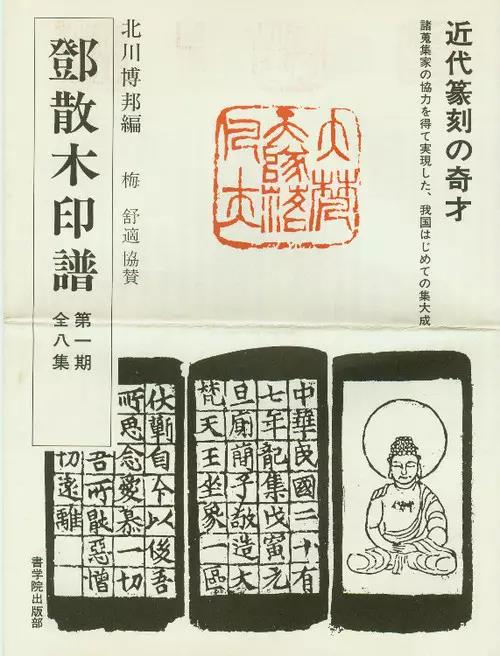 近代篆刻の奇才
諸蒐集家の協力を得て実現した、我国はじめての集大成
北川博邦編 梅 舒適 協賛
鄧散木印譜 第一期 全八集
中華民國二十有
七年龍集戊寅元
旦廁簡子敬造大
梵天王坐象一區
伏自今以後吾
所思念愛慕一切
吾所厭惡憎
切遠離
書学院出版部